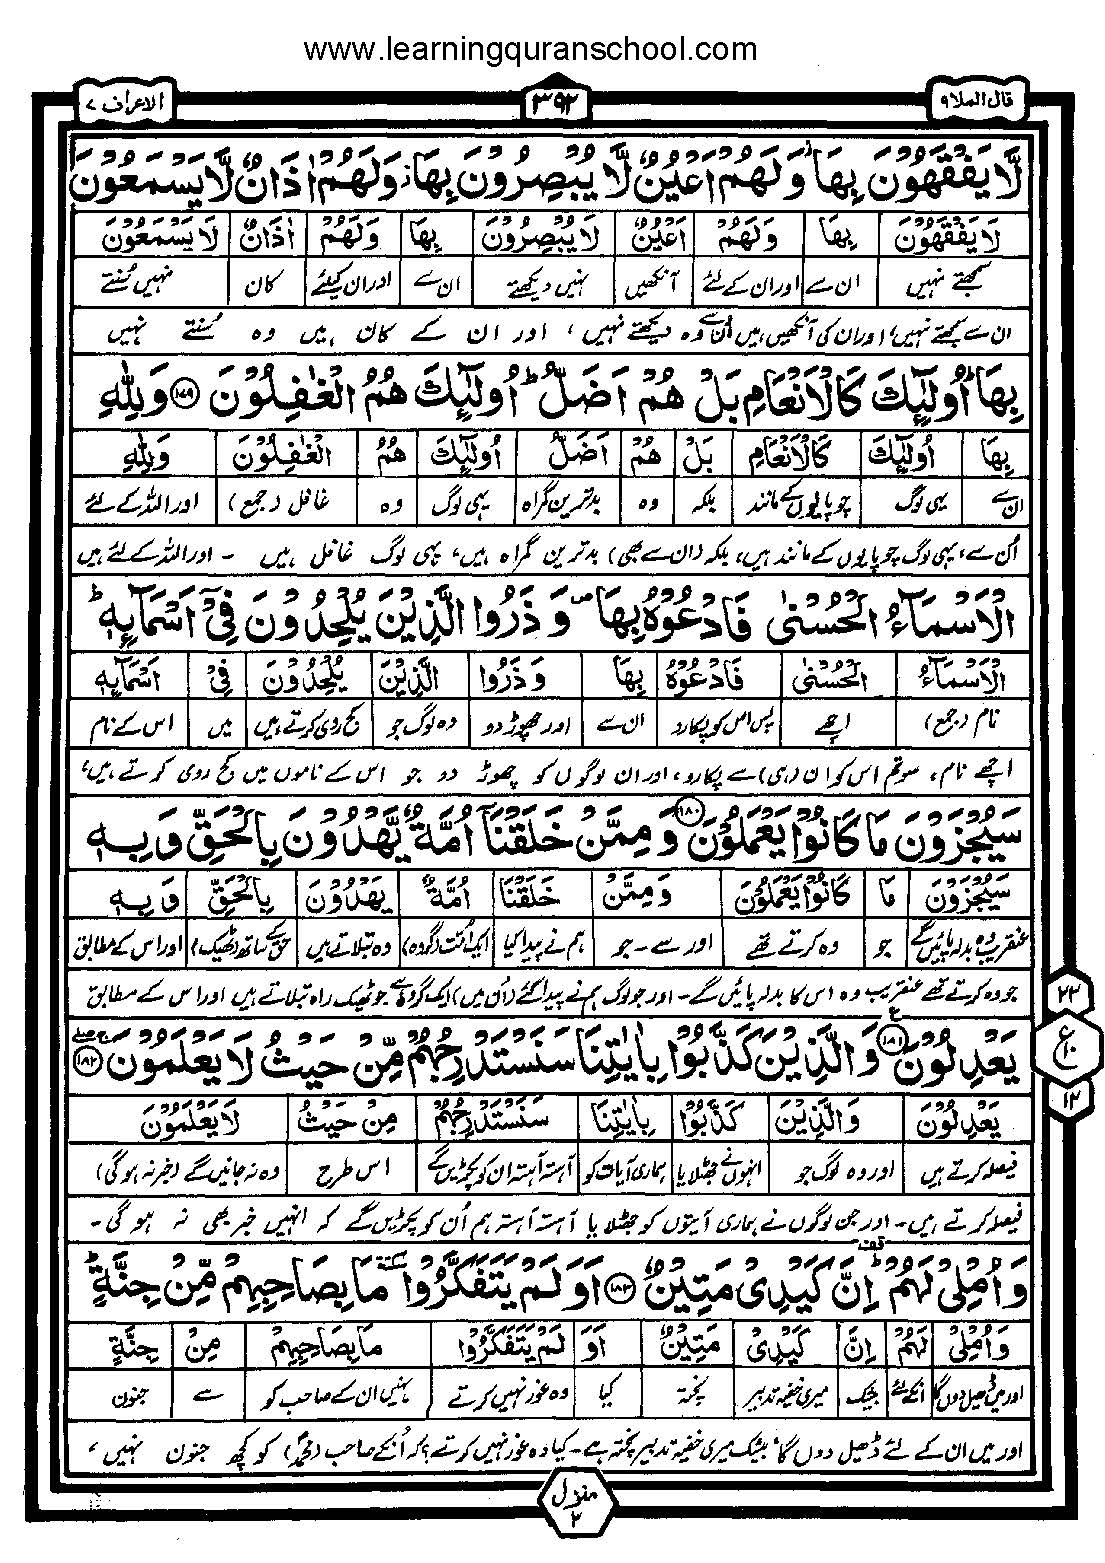 www.learningquranschool.com
قال الملا ۹
۳۹۲
الاعراف ۷
لَّا يَفْقَهُوْنَ بِهَا وَلَهُمْ اَعْيُنٌ لَّا يُبْصِرُوْنَ بِهَا وَلَهُمْ اٰذَانٌ لَّا يَسْمَعُوْنَ
لَا يَفْقَهُوْنَ بِهَا وَلَهُمْ اَعْيُنٌ لَا يُبْصِرُوْنَ بِهَا وَلَهُمْ اٰذَانٌ لَا يَسْمَعُوْنَ
سمجھتے نہیں ان سے اور ان کے لئے آنکھیں نہیں دیکھتے ان سے اور ان کیلئے کان نہیں سُنتے
ان سے سمجھتے نہیں، اور ان کی آنکھیں ہیں اُن سے وہ دیکھتے نہیں، اور ان کے کان ہیں وہ سُنتے نہیں
بِهَا اُولٰٓئِكَ كَالْاَنْعَامِ بَلْ هُمْ اَضَلُّ اُولٰٓئِكَ هُمُ الْغٰفِلُوْنَ ۱۷۹ وَلِلّٰهِ
بِهَا اُولٰٓئِكَ كَالْاَنْعَامِ بَلْ هُمْ اَضَلُّ اُولٰٓئِكَ هُمُ الْغٰفِلُوْنَ وَلِلّٰهِ
ان سے یہی لوگ چوپایوں کے مانند بلکہ وہ بدترین گمراہ یہی لوگ وہ غافل (جمع) اور اللہ کے لئے
اُن سے، یہی لوگ چوپایوں کے مانند ہیں، بلکہ (ان سے بھی) بدترین گمراہ ہیں، یہی لوگ غافل ہیں ۔ اور اللہ کے لئے ہیں
الْاَسْمَآءُ الْحُسْنٰى فَادْعُوْهُ بِهَا وَذَرُوا الَّذِيْنَ يُلْحِدُوْنَ فِيْٓ اَسْمَآئِهٖ
الْاَسْمَآءُ الْحُسْنٰى فَادْعُوْهُ بِهَا وَذَرُوا الَّذِيْنَ يُلْحِدُوْنَ فِيْ اَسْمَآئِهٖ
نام (جمع) اچھے پس اس کو پکارو ان سے اور چھوڑ دو وہ لوگ جو کج روی کرتے ہیں میں اس کے نام
اچھے نام، سو تم اس کو ان (ہی) سے پکارو، اور ان لوگوں کو چھوڑ دو جو اس کے ناموں میں کج روی کرتے ہیں،
سَيُجْزَوْنَ مَا كَانُوْا يَعْمَلُوْنَ ۱۸۰ وَمِمَّنْ خَلَقْنَآ اُمَّةٌ يَّهْدُوْنَ بِالْحَقِّ وَبِهٖ
سَيُجْزَوْنَ مَا كَانُوْا يَعْمَلُوْنَ وَمِمَّنْ خَلَقْنَا اُمَّةٌ يَهْدُوْنَ بِالْحَقِّ وَبِهٖ
عنقریب وہ بدلہ پائیں گے جو وہ کرتے تھے اور سے ۔ جو ہم نے پیدا کیا ایک اُمت (گروہ) وہ بتلاتے ہیں حق کے ساتھ (ٹھیک) اور اس کے مطابق
جو وہ کرتے تھے عنقریب وہ اس کا بدلہ پائیں گے ۔ اور جو لوگ ہم نے پیدا کئے (اُن میں) ایک گروہ ہے جو ٹھیک راہ بتلاتے ہیں اور اس کے مطابق
۲۲
يَعْدِلُوْنَ ۱۸۱ وَالَّذِيْنَ كَذَّبُوْا بِاٰيٰتِنَا سَنَسْتَدْرِجُهُمْ مِّنْ حَيْثُ لَا يَعْلَمُوْنَ ۱۸۲
ع ۱۰
۱۲
يَعْدِلُوْنَ وَالَّذِيْنَ كَذَّبُوْا بِاٰيٰتِنَا سَنَسْتَدْرِجُهُمْ مِنْ حَيْثُ لَا يَعْلَمُوْنَ
فیصلہ کرتے ہیں اور وہ لوگ جو انہوں نے جھٹلایا ہماری آیات کو آہستہ آہستہ ان کو پکڑیں گے اس طرح وہ نہ جانیں گے (خبر نہ ہوگی)
فیصلہ کرتے ہیں ۔ اور جن لوگوں نے ہماری آیتوں کو جھٹلایا آہستہ آہستہ ہم اُن کو پکڑیں گے کہ انہیں خبر بھی نہ ہوگی ۔
وَاُمْلِيْ لَهُمْ اِنَّ كَيْدِيْ مَتِيْنٌ ۱۸۳ اَوَلَمْ يَتَفَكَّرُوْا مَا بِصَاحِبِهِمْ مِّنْ جِنَّةٍ
وَاُمْلِيْ لَهُمْ اِنَّ كَيْدِيْ مَتِيْنٌ اَوَ لَمْ يَتَفَكَّرُوْا مَا بِصَاحِبِهِمْ مِنْ جِنَّةٍ
اور میں ڈھیل دوں گا انکے لئے بیشک میری خفیہ تدبیر پختہ کیا وہ غور نہیں کرتے نہیں ان کے صاحب کو سے جنون
اور میں ان کے لئے ڈھیل دوں گا، بیشک میری خفیہ تدبیر پختہ ہے ۔ کیا وہ غور نہیں کرتے؟ کہ اُنکے صاحب (محمدؐ) کو کچھ جنون نہیں،
منزل ۲